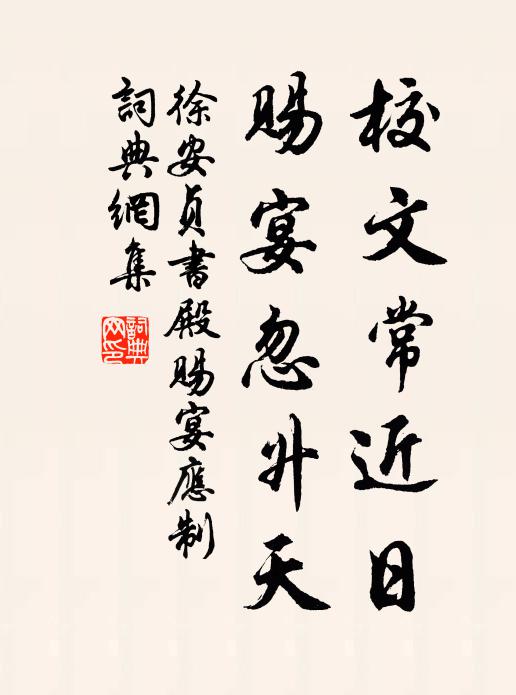 校文常近日
賜宴忽升天
徐安貞書殿賜宴應制
詞典網集
詞典网印